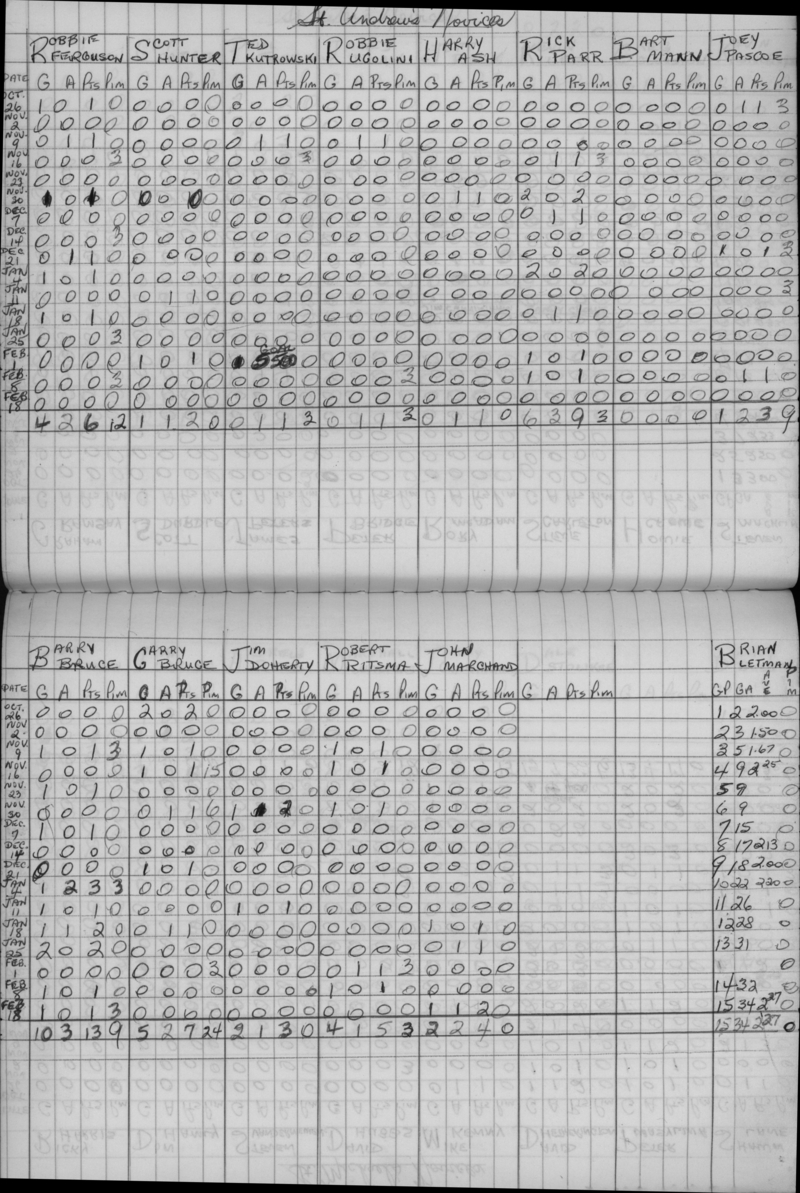 St. Andrew's Novices
ROBBIE FERGUSON SCOTT HUNTER TED KUTROWSKI ROBBIE UGOLINI HARRY ASH RICK PARR BART MANN JOEY PASCOE
DATE G A Pts Pim G A Pts Pim G A Pts Pim G A Pts Pim G A Pts Pim G A Pts Pim G A Pts Pim G A Pts Pim
OCT. 26 1 0 1 0 0 0 0 0 0 0 0 0 0 0 0 0 0 0 0 0 0 0 0 0 0 0 0 0 0 1 1 3
NOV. 2 0 0 0 0 0 0 0 0 0 0 0 0 0 0 0 0 0 0 0 0 0 0 0 0 0 0 0 0 0 0 0 0
NOV. 9 0 1 1 0 0 0 0 0 0 1 1 0 0 1 1 0 0 0 0 0 0 0 0 0 0 0 0 0 0 0 0 0
NOV 16 0 0 0 3 0 0 0 0 0 0 0 3 0 0 0 0 0 0 0 0 0 1 1 3 0 0 0 0 0 0 0 0
NOV. 23 0 0 0 0 0 0 0 0 0 0 0 0 0 0 0 0 0 0 0 0 0 0 0 0 0 0 0 0 0 0 0 0
NOV. 30 1 0 1 0 0 0 0 0 0 0 0 0 0 0 0 0 0 1 1 0 2 0 2 0 0 0 0 0 0 0 0 0
DEC 7 0 0 0 0 0 0 0 0 0 0 0 0 0 0 0 0 0 0 0 0 0 1 1 0 0 0 0 0 0 0 0 0
DEC 14 0 0 0 3 0 0 0 0 0 0 0 0 0 0 0 0 0 0 0 0 0 0 0 0 0 0 0 0 0 0 0 0
DEC 21 0 1 1 0 0 0 0 0 0 0 0 0 0 0 0 0 0 0 0 0 0 0 0 0 0 0 0 0 1 0 1 3
JAN 4 1 0 1 0 0 0 0 0 0 0 0 0 0 0 0 0 0 0 0 0 2 0 2 0 0 0 0 0 0 0 0 0
JAN 11 0 0 0 0 0 1 1 0 0 0 0 0 0 0 0 0 0 0 0 0 0 0 0 0 0 0 0 0 0 0 0 3
JAN 18 1 0 1 0 0 0 0 0 0 0 0 0 0 0 0 0 0 0 0 0 0 1 1 0 0 0 0 0 0 0 0 0
JAN 25 0 0 0 3 0 0 0 0 0 0 0 0 0 0 0 0 0 0 0 0 0 0 0 0 0 0 0 0 0 0 0 0
FEB 1 0 0 0 0 1 0 1 0 0 0 0 0 0 0 0 0 0 0 1 0 1 0 0 0 0 0 0 0 0 0
FEB. 8 0 0 0 3 0 0 0 0 0 0 0 0 0 0 0 3 0 0 0 0 1 0 1 0 0 0 0 0 0 1 1 0
FEB 18 0 0 0 0 0 0 0 0 0 0 0 0 0 0 0 0 0 0 0 0 0 0 0 0 0 0 0 0 0 0 0 0
4 2 6 12 1 1 2 0 0 1 1 3 0 1 1 3 0 1 1 0 6 3 9 3 0 0 0 0 1 2 3 9
BARRY BRUCE GARRY BRUCE JIM DOHERTY ROBERT RITSMA JOHN MARCHAND BRIAN LETMAN
DATE G A Pts Pim G A Pts Pim G A Pts Pim G A Pts Pim G A Pts Pim G A Pts Pim GP GA AVE PIM
OCT. 26 0 0 0 0 2 0 2 0 0 0 0 0 0 0 0 0 0 0 0 0 1 2 2.00 0
NOV. 2 0 0 0 0 0 0 0 0 0 0 0 0 0 0 0 0 0 0 0 0 2 3 1.50 0
NOV. 9 1 0 1 3 1 0 1 0 0 0 0 0 1 0 1 0 0 0 0 0 3 5 1.67 0
NOV. 16 0 0 0 0 1 0 1 15 0 0 0 0 1 0 1 0 0 0 0 0 4 9 2.25 0
NOV. 23 1 0 1 0 0 0 0 0 0 0 0 0 0 0 0 0 0 0 0 0 5 9 0
NOV 30 0 0 0 0 0 1 1 6 1 1 2 0 1 0 1 0 0 0 0 0 6 9 0
DEC. 7 1 0 1 0 0 0 0 0 0 0 0 0 0 0 0 0 0 0 0 0 7 15 0
DEC. 14 0 0 0 0 0 0 0 0 0 0 0 0 0 0 0 0 0 0 0 0 8 17 2.13 0
DEC. 21 0 0 0 0 1 0 1 0 0 0 0 0 0 0 0 0 0 0 0 0 9 18 2.00 0
JAN 4 1 2 3 3 0 0 0 0 0 0 0 0 0 0 0 0 0 0 0 0 10 22 2.20 0
JAN 11 1 0 1 0 0 0 0 0 1 0 1 0 0 0 0 0 0 0 0 0 11 26 0
JAN 18 1 1 2 0 0 1 1 0 0 0 0 0 0 0 0 0 1 0 1 0 12 28 0
JAN 25 2 0 2 0 0 0 0 0 0 0 0 0 0 0 0 0 0 1 1 0 13 31 0
FEB. 1 0 0 0 0 0 0 0 3 0 0 0 0 0 1 1 3 0 0 0 0 0
FEB 8 1 0 1 0 0 0 0 0 0 0 0 0 1 0 1 0 0 0 0 0 14 32 0
FEB 18 1 0 1 3 0 0 0 0 0 0 0 0 0 0 0 0 1 1 2 0 15 34 2.27 0
10 3 13 9 5 2 7 24 2 1 3 0 4 1 5 3 2 2 4 0 15 34 2.27 0